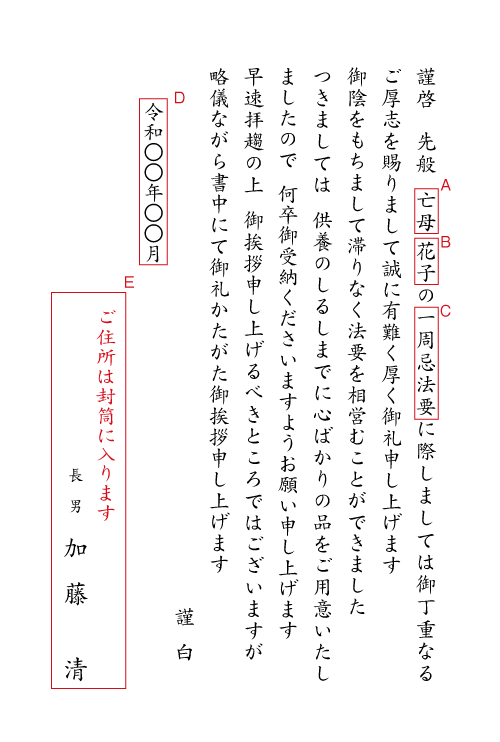 謹啓　先般　亡母　花子の一周忌法要に際しましては御丁重なる
ご厚志を賜りまして誠に有難く厚く御礼申し上げます
御陰をもちまして滞りなく法要を相営むことができました
つきましては　供養のしるしまでに心ばかりの品をご用意いたし
ましたので　何卒御受納くださいますようお願い申し上げます
早速拝趨の上　御挨拶申し上げるべきところではございますが
略儀ながら書中にて御礼かたがた御挨拶申し上げます
謹白
令和〇〇年〇〇月
ご住所は封筒に入ります
長男　加藤　清
A
B
C
D
E